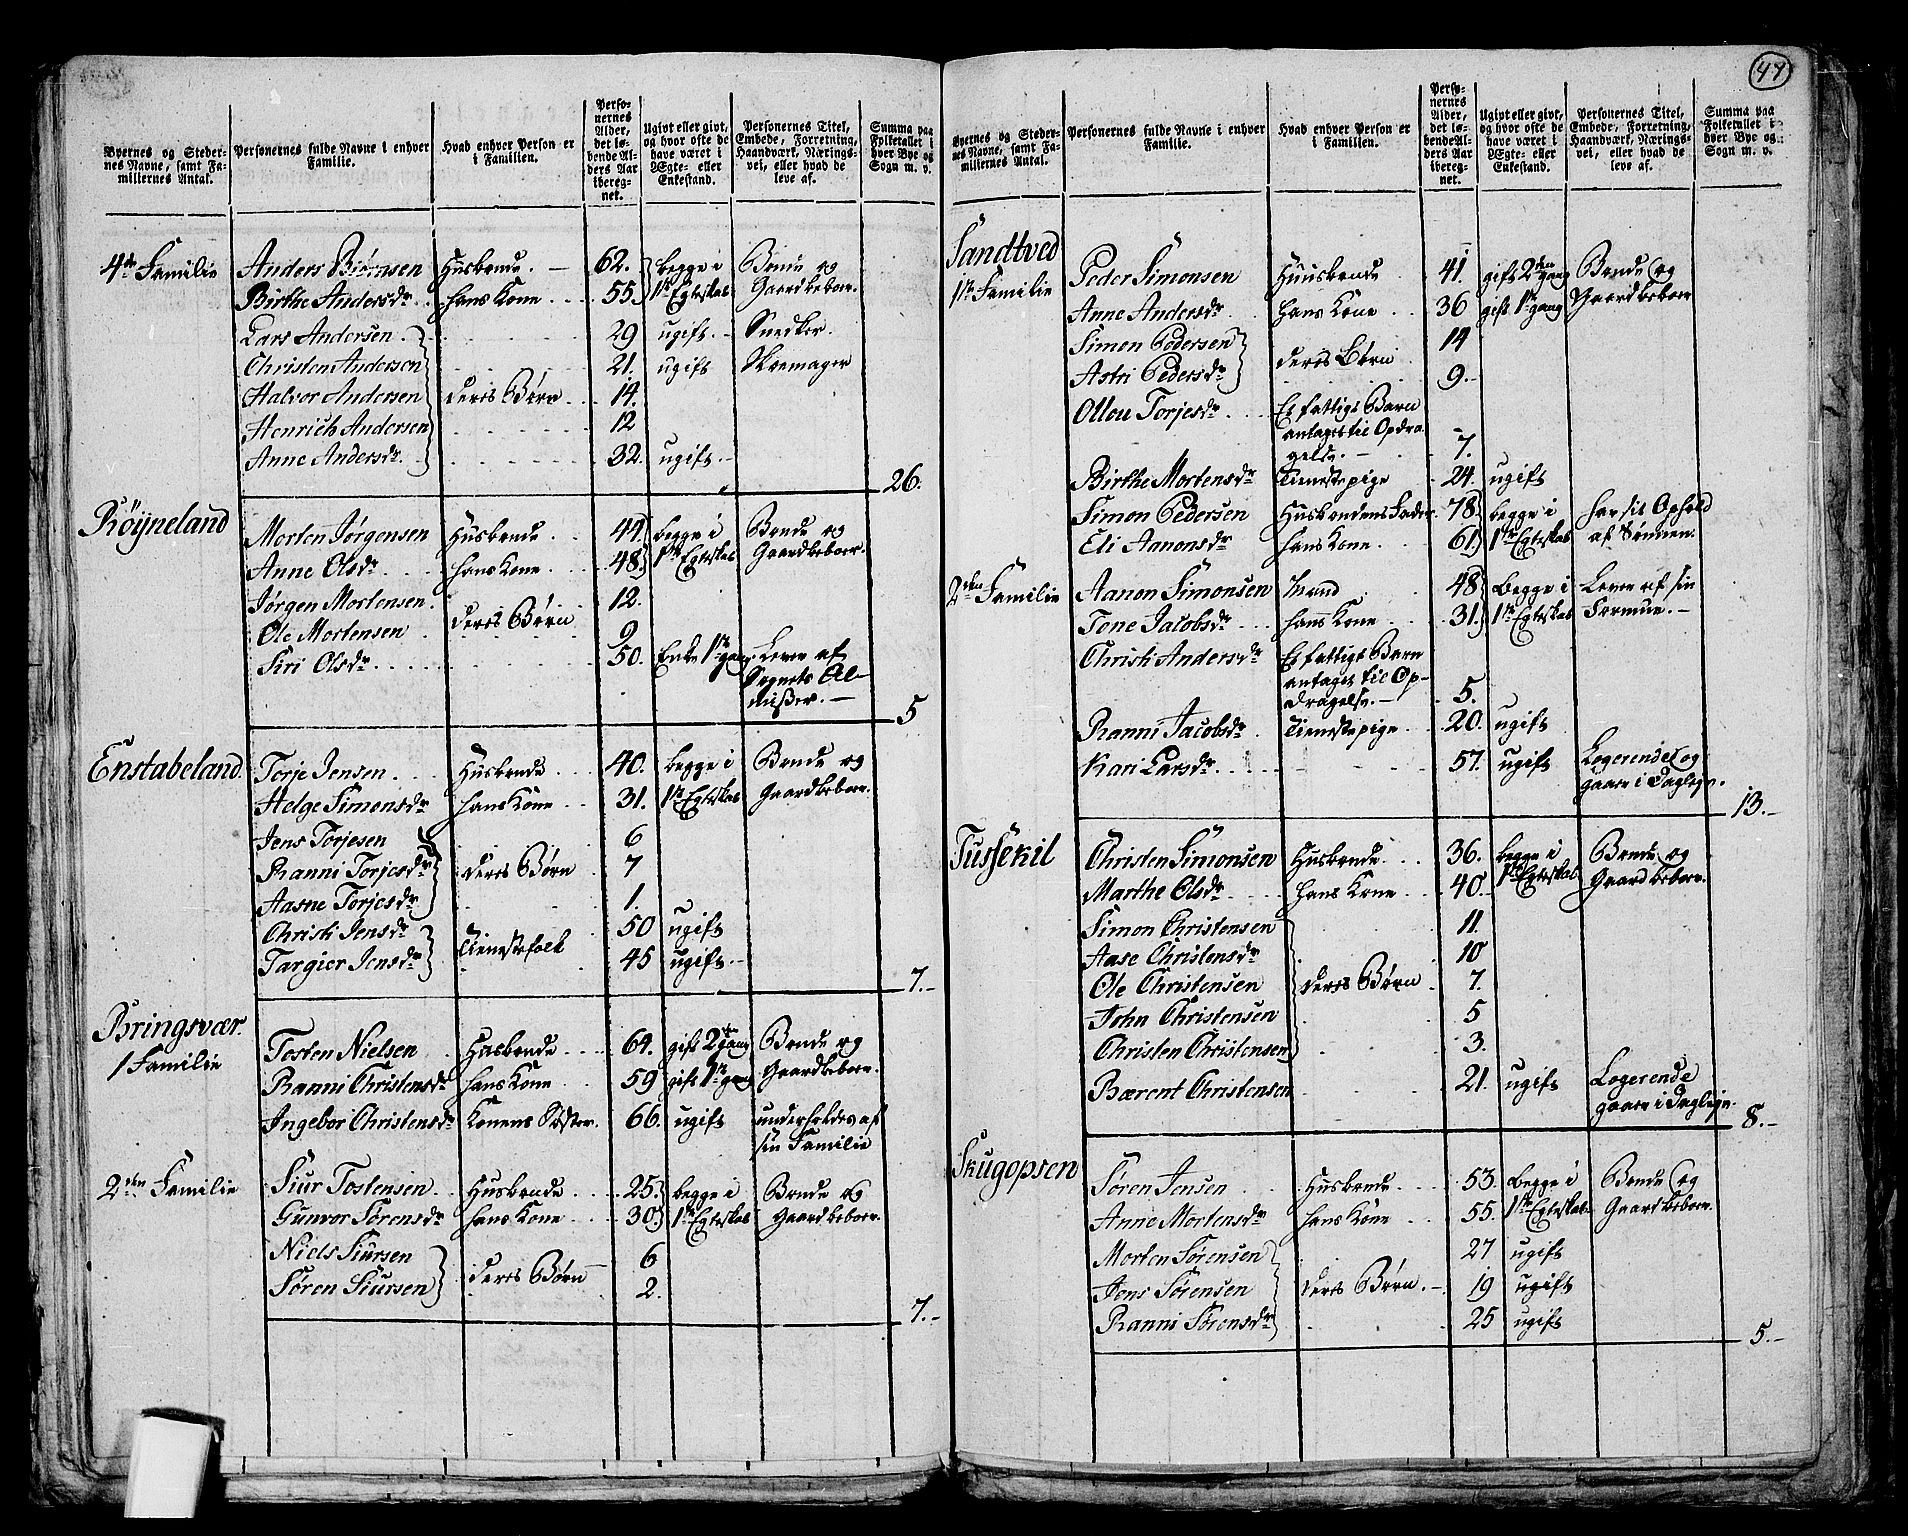 44
Byernes og Steder-
nes Navne, samt Fa-
miliernes Antal.
Personernes fulde Navne i enhver
Familie.
Hvad enhver Person er
i Familien.
Perso-
nernes
Alder,
det lø-
bende Al-
ders Aar
iberegn-
net.
Ugivt eller givt,
og hvor ofte de
have været i
Ægte- eller
Enkestand.
Personernes Titel,
Embede, Forretning,
Haandværk, Nærings-
vei, eller hvad de
leve af.
Summa paa
Folketallet i
hver Bye og
Sogn m. v.
4de Familie Anders Biørnsen Husbonde. 62. begge i Bonde og
Birthe Andersdr. hans Kone 55. 1ste Egteskab Gaardbeboer.
Lars Andersen 29 ugift Snedker.
Christen Andersen 21. ugift Skomager
Halvor Andersen deres Børn 14.
Henrich Andersen 12
Anne Andersdr. 32. ugift.
26.
Røyneland Morten Jørgensen Husbonde 44. begge i Bonde og
Anne Olsdr. hans Kone 48. 1ste Egteskab Gaardbeboer.
Jørgen Mortensen 12.
Ole Mortensen deres Børn 9
Siri Olsdr. 50. Enke 1ste gang Lever af
Sognets Al-
misser.
5
Enstabeland. Torje Jensen Husbonde 40. begge i Bonde og
Helge Simonsdr. hans Kone 31. 1ste Egteskab Gaardbeboer.
Jens Torjesen 6
Ranni Torjesdr. deres Børn 7
Aasne Torjesdr. 1.
Christi Jensdr. 50 ugift
Targier Jensdr. Tienestefolk 45 ugift.
7.
Bringsvær.
1 Familie Tosten Nielsen Husbonde 64. gift 2 gang Bonde og
Ranni Christensdr. hans Kone 59 gift 1ste gang Gaardbeboer.
Ingebor Christensdr. Konens Søster. 66. ugift underholdes af
sin Familie
2den Familie Siur Tostensen Husbonde 25. begge i Bonde og
Gunvor Sørensdr. hans Kone 30. 1ste Egteskab Gaardbeboer.
Niels Siursen 6
Søren Siursen deres Børn 2.
7.
Byernes og Steder-
nes Navne, samt Fa-
miliernes Antal.
Personernes fulde Navne i enhver
Familie.
Hvad enhver Person er
i Familien.
Perso-
nernes
Alder,
det lø-
bende Al-
ders Aar
iberegn-
net.
Ugivt eller givt,
og hvor ofte de
have været i
Ægte- eller
Enkestand.
Personernes Titel,
Embede, Forretning,
Haandværk, Nærings-
vei, eller hvad de
leve af.
Summa paa
Folketallet i
hver Bye og
Sogn m. v.
Sandtved
1ste Familie Peder Simonsen Huusbonde 41. gift 2den gang Bonde og
Anne Andersdr. hans Kone 36 gift 1ste gang Gaardbeboer
Simon Pedersen 14
Astri Pedersdr. deres Børn 9.
Ollou Torjesdr. Et fattigt Barn
antaget til Opdra-
gelse. 7.
Birthe Mortensdr. Tienestepige 24. ugift
Simon Pedersen Husbondens Fader. 78. begge i har sit Ophold
Eli Aanonsdr. hans Kone. 61. 1ste Egteskab af Sønnen.
2den Familie Aanon Simonsen Mand 48. Begge i Lever af sin
Tone Jacobsdr. hans Kone 31. 1ste Egteskab Formue.
Christi Andersdr. Et fattigt Barn
antaget til Op-
dragelse. 5.
Ranni Jacobsdr. Tienestepige 20. ugift
Kari Larsdr. 57. ugift Logerende og
gaaer i Dagleje.
13.
Tussekil Christen Simonsen Husbonde 36. begge i Bonde og
Marthe Olsdr. hans Kone 40. 1ste Egteskab Gaardbeboer.
Simon Christensen 11.
Aase Christensdr. 10
Ole Christensen deres Børn 7.
John Christensen 5
Christen Christensen 3.
Bærent Christensen 21. ugift Logerende
gaaer i Dagleje.
8.
Skugopsen Søren Jensen Husbonde 53. Begge i Bonde og
Anne Mortensdr. hans Kone 55. 1ste Egteskab. Gaardbeboer.
Morten Sørensen 27 ugift
Jens Sørensen deres Børn. 19 ugift
Ranni Sørensdr. 25 ugift
5.